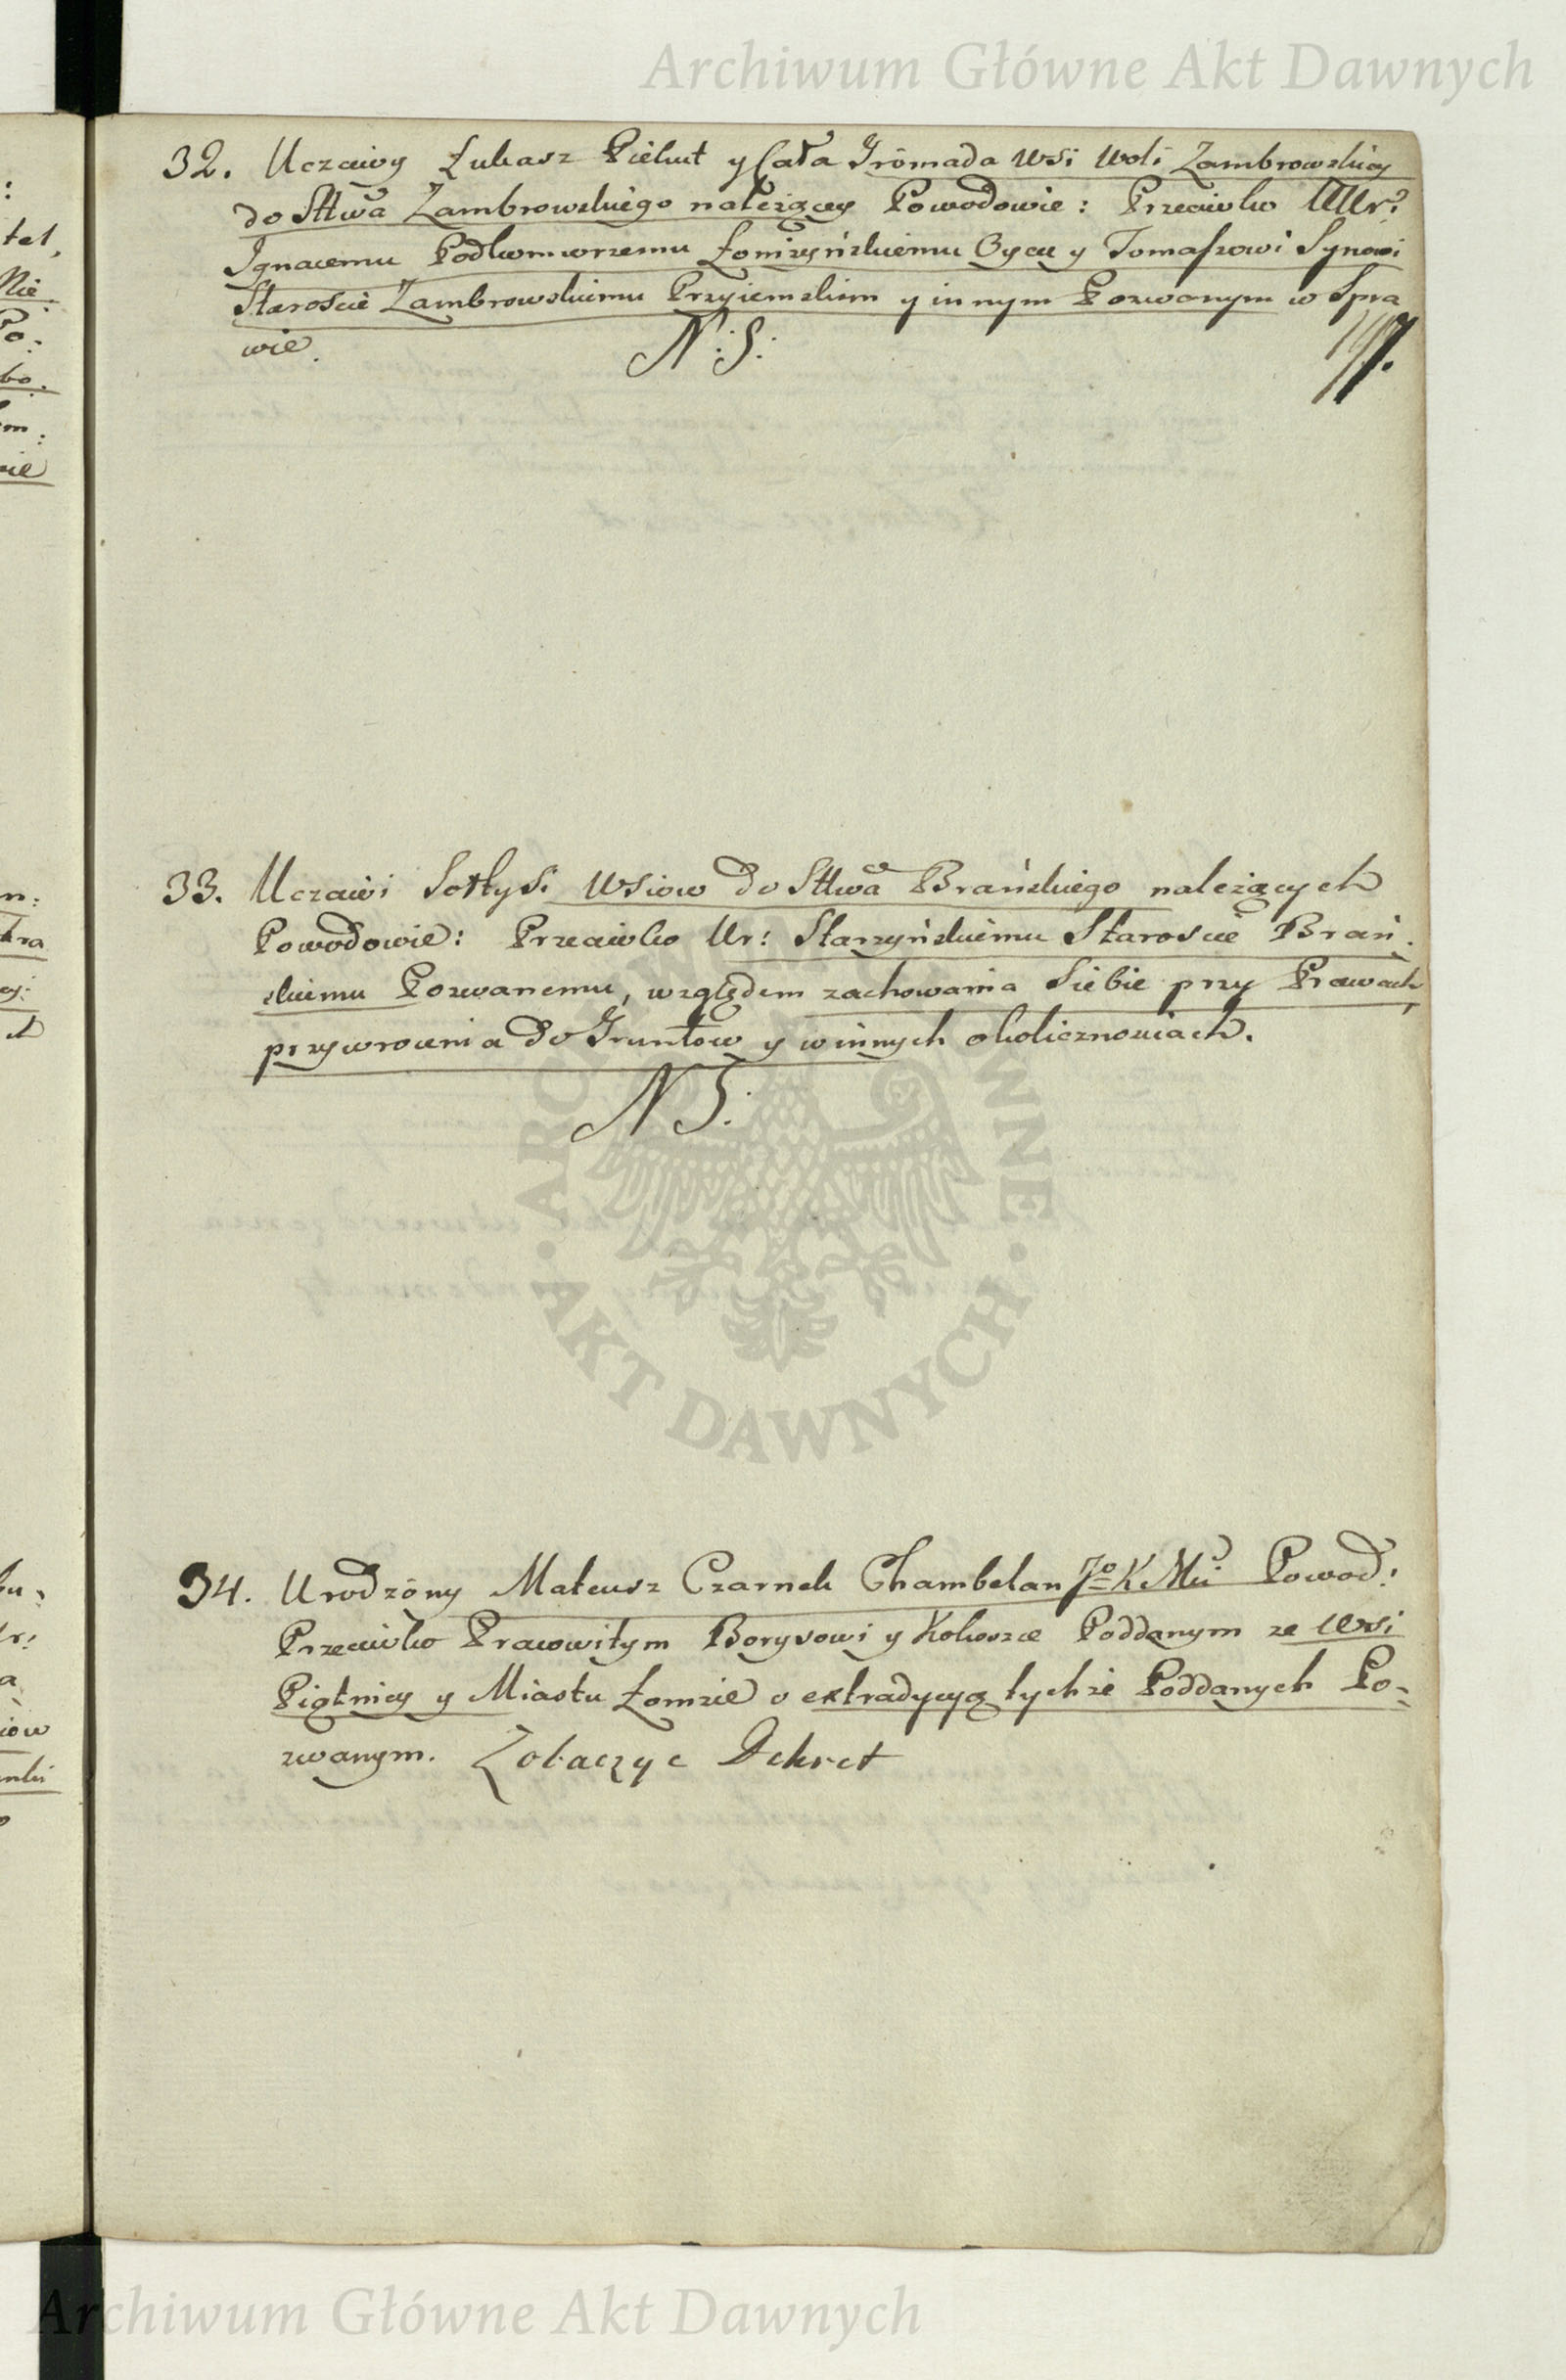 Archiwum Główne Akt Dawnych
32. Uczciwy Łukasz Piekut y Cała Gromada Wsi Woli Zambrowskiey
do Sttwa Zambrowskiego należącey Powodowie: Przeciwko UUr:
Ignacemu Podkomorzemu Łomżyńskiemu Oycu y Tomaszowi Synowi
Staroscie Zambrowskiemu Przyiemskim y innym Pozwanym w Spra
wie.
N: S:
33. Uczciwi Sołtysi Wsiow do Sttwa Brańskiego należących
Powodowie: Przeciwko Ur: Starzyńskiemu Staroscie Brań
skiemu Pozwanemu, względem zachowania Siebie przy Prawach,
przywrocenia do Gruntow y w innych okolicznosciach.
N S:
34. Urodzony Mateusz Czarnek Chambelan JoKMci Powod:
Przeciwko Pracowitym Borysowi y Kokoszce Poddanym ze Wsi
Piątnicy y Miastu Łomzie o extradycyą tychże Poddanych Po-
zwanym. Zobaczyc Dekret
ARCHIWUM GŁÓWNE · AKT DAWNYCH ·
Archiwum Główne Akt Dawnych